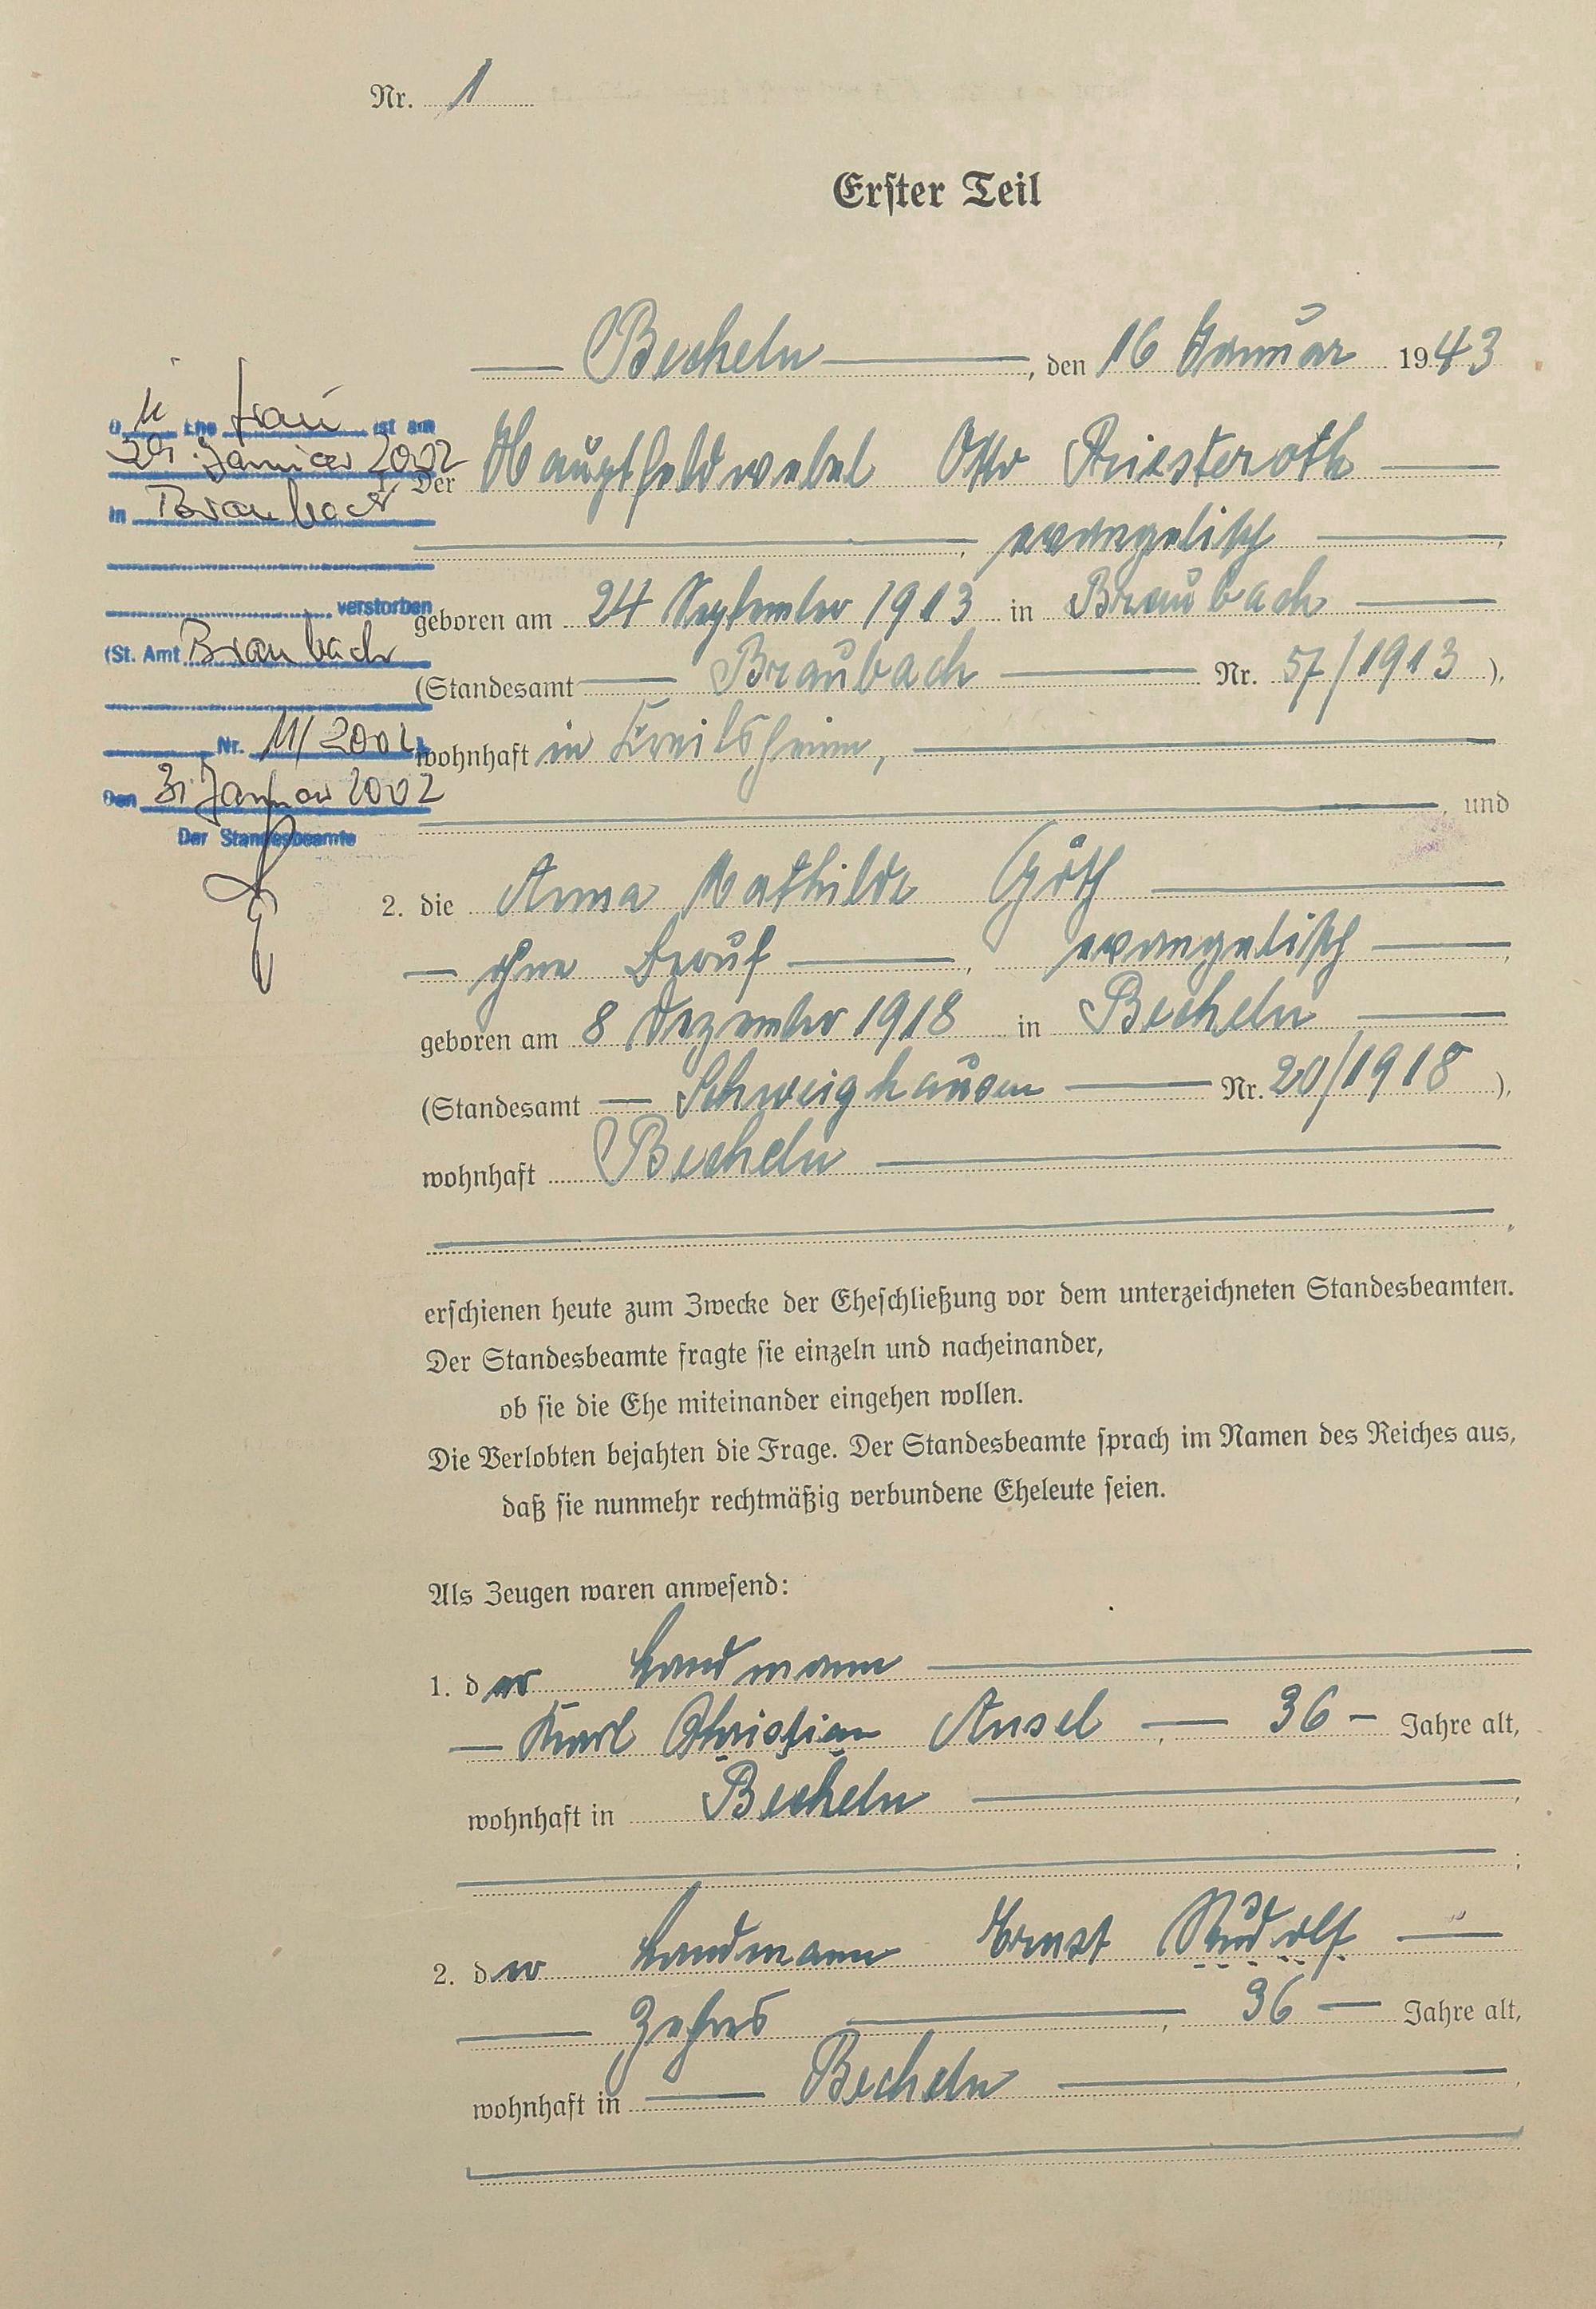 Nr. 1
Erster Teil
Becheln, den 16 Januar 1943
Frau ist am
29. Januar 2002
in Braubach
verstorben
(St. Amt Braubach
Nr. 11/2002)
Den 31. Januar 2002
Der Standesbeamte
1. Der Hauptfeldwebel Otto Riesteroth
, evangelisch,
geboren am 24 September 1913 in Braubach
(Standesamt Braubach Nr. 57/1913),
wohnhaft in Crailsheim,
, und
2. die Anna Mathilde Göth
ohne Beruf, evangelisch,
geboren am 8 Dezember 1918 in Becheln
(Standesamt Schweighausen Nr. 20/1918),
wohnhaft Becheln
erschienen heute zum Zwecke der Eheschließung vor dem unterzeichneten Standesbeamten.
Der Standesbeamte fragte sie einzeln und nacheinander,
ob sie die Ehe miteinander eingehen wollen.
Die Verlobten bejahten die Frage. Der Standesbeamte sprach im Namen des Reiches aus,
daß sie nunmehr rechtmäßig verbundene Eheleute seien.
Als Zeugen waren anwesend:
1. der Landmann
Karl Christian Ansel, 36 Jahre alt,
wohnhaft in Becheln,
;
2. der Landmann Ernst Rudolf
Zehres, 36 Jahre alt,
wohnhaft in Becheln,